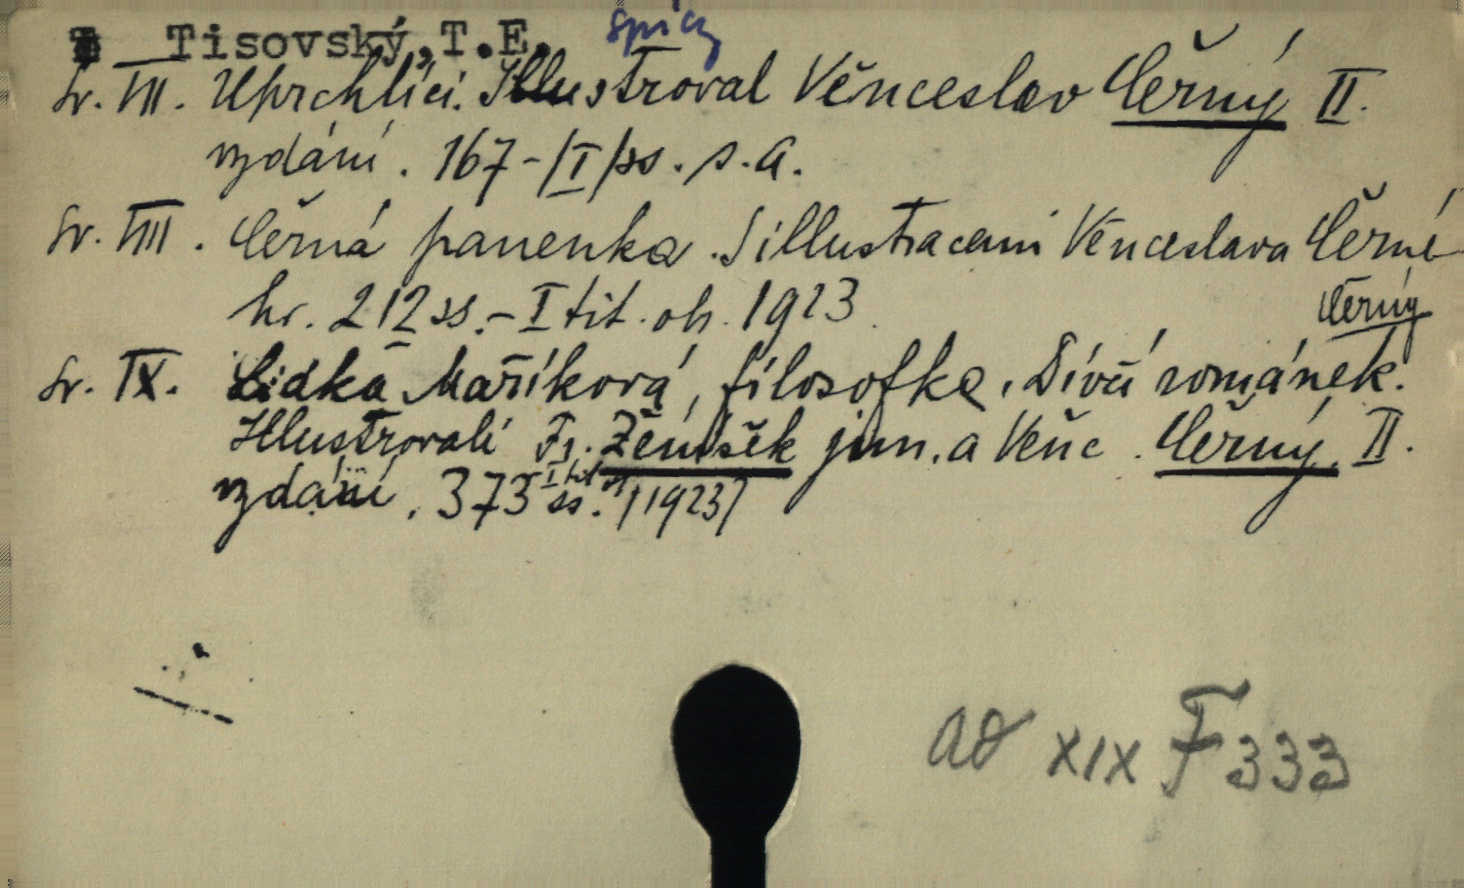 Tisovský, T.E. spisy
Sv. VII. Uprchlíci. Illustroval Věnceslav Černý II.
vydání. 167-/I/ss. s.a.
Sv. VIII. Černá panenka. S illustracemi Věnceslava Černé-
ho. 212 ss.-I tit. ob. 1923
Černý
Sv. IX. Lidka Maříková, filosofka. Dívčí románek.
Illustrovali Fr. Ženíšek jun. a Věnc. Černý. II.
vydání. 373 ss. I tit. ob. /1923/
ad XIX F 333